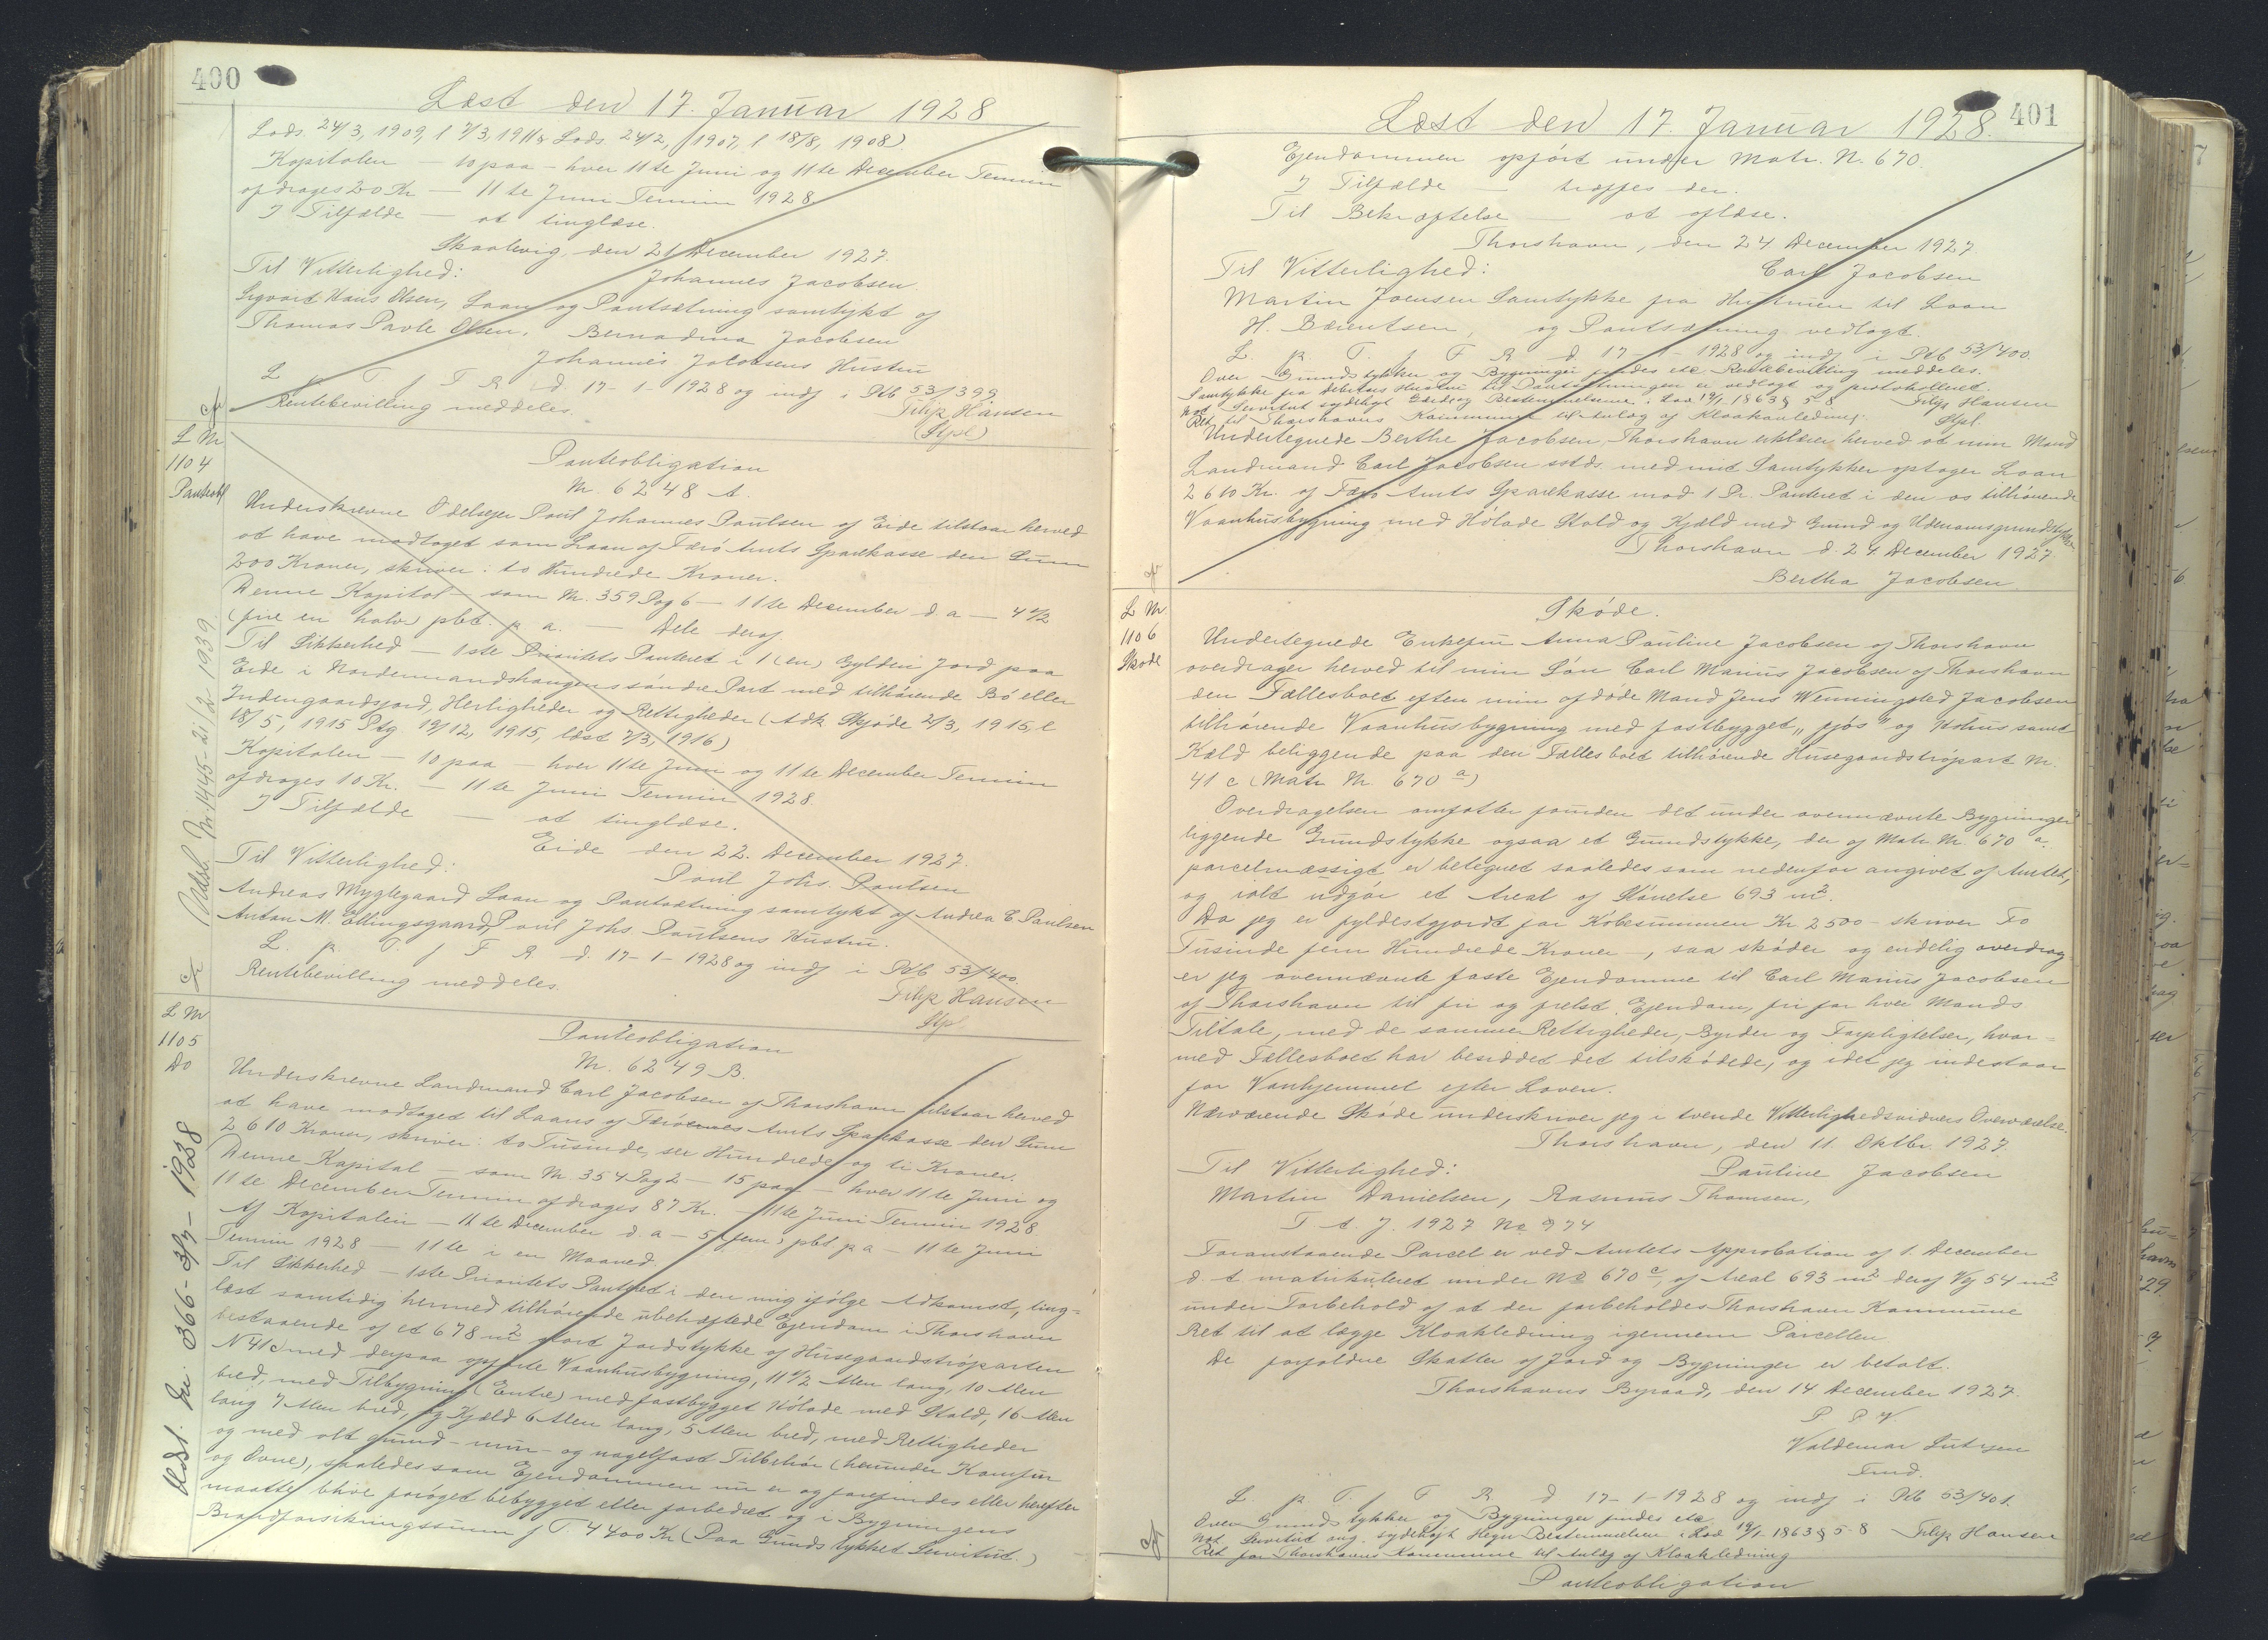 400
Læst den 17. Januar 1928
Lods. 24/3, 1909, l 7/3, 1911 & Lods. 24/2, 1907, l 18/8, 1908).
Kapitalen — 10 paa — hver 11te Juni og 11te December Termin
afdrages 20 Kr — 11te Juni Termin 1928.
I Tilfælde — at tinglæse.
Skaalevig, den 21 December 1927.
Til Vitterlighed: Johannes Jacobsen
Sigvard Hans Olsen, Laan og Pantsætning samtykt af
Thomas Pavle Olsen. Bernadina Jacobsen
Johannes Jacobsens Hustru
L p T. f F R d. 17-1-1928 og indf i Ptb 53/399
Rentebevilling meddeles. Filip Hansen
(Stpl)
L Nr
1104
Panteobl
Panteobligation
Nr. 6248 A.
Underskrevne Odelsejer Poul Johannes Poulsen af Eide tilstaar herved
at have modtaget som Laan af Færø Amts Sparekasse den Sum
200 Kroner, skriver: to Hundrede Kroner.
Denne Kapital — som Nr. 359 Pag 6 — 11te December d a — 4 1/2
(fire en halv) pct. p. a. — Dele deraf
Til Sikkerhed — 1ste Prioritets Panteret i 1 (en) Gylden Jord paa
Eide i Nordenmandshaugens søndre Part med tilhørende Bø eller
Indengaardsjord, Herligheder og Rettigheder (Adk Skjøde 2/3, 1915, l
18/5, 1915 Ptg 19/12, 1915, læst 7/3, 1916)
Kapitalen — 10 paa — hver 11te Juni og 11te December Termin
afdrages 10 Kr. — 11te Juni Termin 1928.
I Tilfælde — at tinglæse.
Eide den 22. December 1927.
Til Vitterlighed: Poul Johs. Poulsen
Andreas Myglegaard Laan og Pantsætning samtykt af Andrea C. Poulsen
Anton M. Ellingsgaard, Poul Johs Poulsens Hustru.
L. p. T. f F R. d. 17-1-1928 og indf i Ptb 53/400.
Rentebevilling meddeles. Filip Hansen
Stpl.
Udsl. Nr. 1445 - 21/2 1939.
L Nr
1105
Do
Panteobligation
Nr. 6249 B.
Underskrevne Landmand Carl Jacobsen af Thorshavn tilstaar herved
at have modtaget til Laans af Færøernes Amts Sparekasse den Sum
2610 Kroner, skriver: to Tusinde, sex Hundrede og ti Kroner.
Denne Kapital — som Nr. 354 Pag 2 — 15 paa — hver 11te Juni og
11te December Termin afdrages 87 Kr. — 11te Juni Termin 1928
Af Kapitalen — 11te December d. a — 5 (fem) pct p a — 11te Juni
Termin 1928 — 11te i en Maaned.
Til Sikkerhed — 1ste Prioritets Panteret i den mig ifølge Adkomst, ting=
læst samtidig hermed tilhørende ubehæftede Ejendom i Thorshavn
bestaaende af et 678 m2 stort Jordstykke af Husegaardstrøparten
N 41c med derpaa opførte Vaanhusbygning, 11 1/2 Alen lang, 10 Alen
bred, med Tilbygning (Entre) med fastbygget Hølade med Stald, 16 Alen
lang 7 Alen bred, og Kjæld 6 Alen lang, 5 Alen bred, med Rettigheder
og med alt grund- mur- og nagelfast Tilbehør (herunder Komfur
og Ovne), saaledes som Ejendommen nu er og forefindes eller herefter
maatte blive forøget bebygget eller forbedret og i Bygningens
Brandforsikringssum f T. 4400 Kr (Paa Grundstykket Servitut.)
Udsl. Nr. 366 - 3/7 - 1938
401
Læst den 17. Januar 1928.
Ejendommen opført under Matr. N. 670.
I Tilfælde — træffes der.
Til Bekræftelse — at aflæse.
Thorshavn, den 24 December 1927.
Til Vitterlighed: Carl Jacobsen
Martin Joensen Samtykke fra Hustruen til Laan
H. Bærentsen, og Pantsætning vedlagt.
L. p. T. f F R d. 17-1-1928 og indf i Ptb 53/400.
Over Grundstykker og Bygninger findes etc. Rentebevilling meddeles.
Samtykke fra debitors Hustru til Pantsætningen er vedlagt og protokolleret.
Not Servitut Bestemmelserne i Lov 19/1 1863 § 5-8 Filip Hansen
Ret til Thorshavns Kommune til Anlæg af Kloakanledning. Stpl.
Undertegnede Berthe Jacobsen, Thorshavn erklærer herved at min Mand
Landmand Carl Jacobsen sstds. med mit Samtykke optager Laan
2610 Kr. af Færø Amts Sparekasse mod 1 Pr. Panteret i den os tilhørende
Vaanhusbygning med Hølade Stald og Kjæld med Grund og Udenomsgrundstykke
Thorshavn d. 24 December 1927
Bertha Jacobsen
L Nr
1106
Skøde
Skøde.
Undertegnede Enkefru Anna Pauline Jacobsen af Thorshavn
overdrager herved til min Søn Carl Marius Jacobsen af Thorshavn
den Fællesboet efter min afdøde Mand Jens Wenningsted Jacobsen
tilhørende Vaanhusbygning med fastbygget „fjós" og Hohus samt
Kæld beliggende paa den Fællesboet tilhørende Husegaardstrøpart Nr.
41 c (Matr Nr. 670 a)
Overdragelsen omfatter foruden det under ovennævnte Bygninger
liggende Grundstykke ogsaa et Grundstykke, der af Matr. Nr. 670 a.
parcelmæssigt er betegnet saaledes som nedenfor angivet af Amtet,
og ialt udgør et Areal af Størrelse 693 m2.
Da jeg er fyldestgjordt for Købesummen Kr 2500 - skriver To
Tusinde fem Hundrede Kroner -, saa skøder og endelig overdrag
er jeg ovennævnte faste Ejendomme til Carl Marius Jacobsen
af Thorshavn til fri og frelst Ejendom, fri for hver Mands
Tiltale, med de samme Rettigheder, Byrder og Forpligtelser, hvor=
med Fællesboet har besiddet det tilskødede, og idet jeg indestaar
for Vanhjemmel efter Loven.
Nærværende Skøde underskriver jeg i tvende Vitterlighedsvidners Overværelse.
Thorshavn, den 11. Oktbr. 1927.
Til Vitterlighed: Pauline Jacobsen
Martin Danielsen, Rasmus Thomsen,
T A. J. 1927 No 974
Foranstaaende Parcel er ved Amtets Approbation af 1. December
d. A matrikuleret under No 670 c, af Areal 693 m2 deraf Vej 54 m2
under Forbehold af at der forbeholdes Thorshavn Kommune
Ret til at lægge Kloakledning igennem Parcellen
De forfaldne Skatter af Jord og Bygninger er betalt.
Thorshavns Byraad, den 14 December 1927.
P B V.
Valdemar Lützen
Fmd.
L p T. f F R d 17-1-1928 og indf i Ptb 53/401.
Over Grundstykker og Bygninger findes etc
Not. Servitut ang. Hegn Bestemmelser i Lov 19/1 1863 § 5-8 Filip Hansen
Ret for Thorshavns Kommune til Anlæg af Kloakledning
Panteobligation